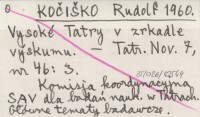 KOČIŠKO Rudolf 1960.
Vysoké Tatry v zrkadle
výskumu. – Tatr. Nov. 7,
nr 46: 3.
Komisja koordynacyjna
SAV dla badań nauk. w Tatrach.
Główne tematy badawcze.